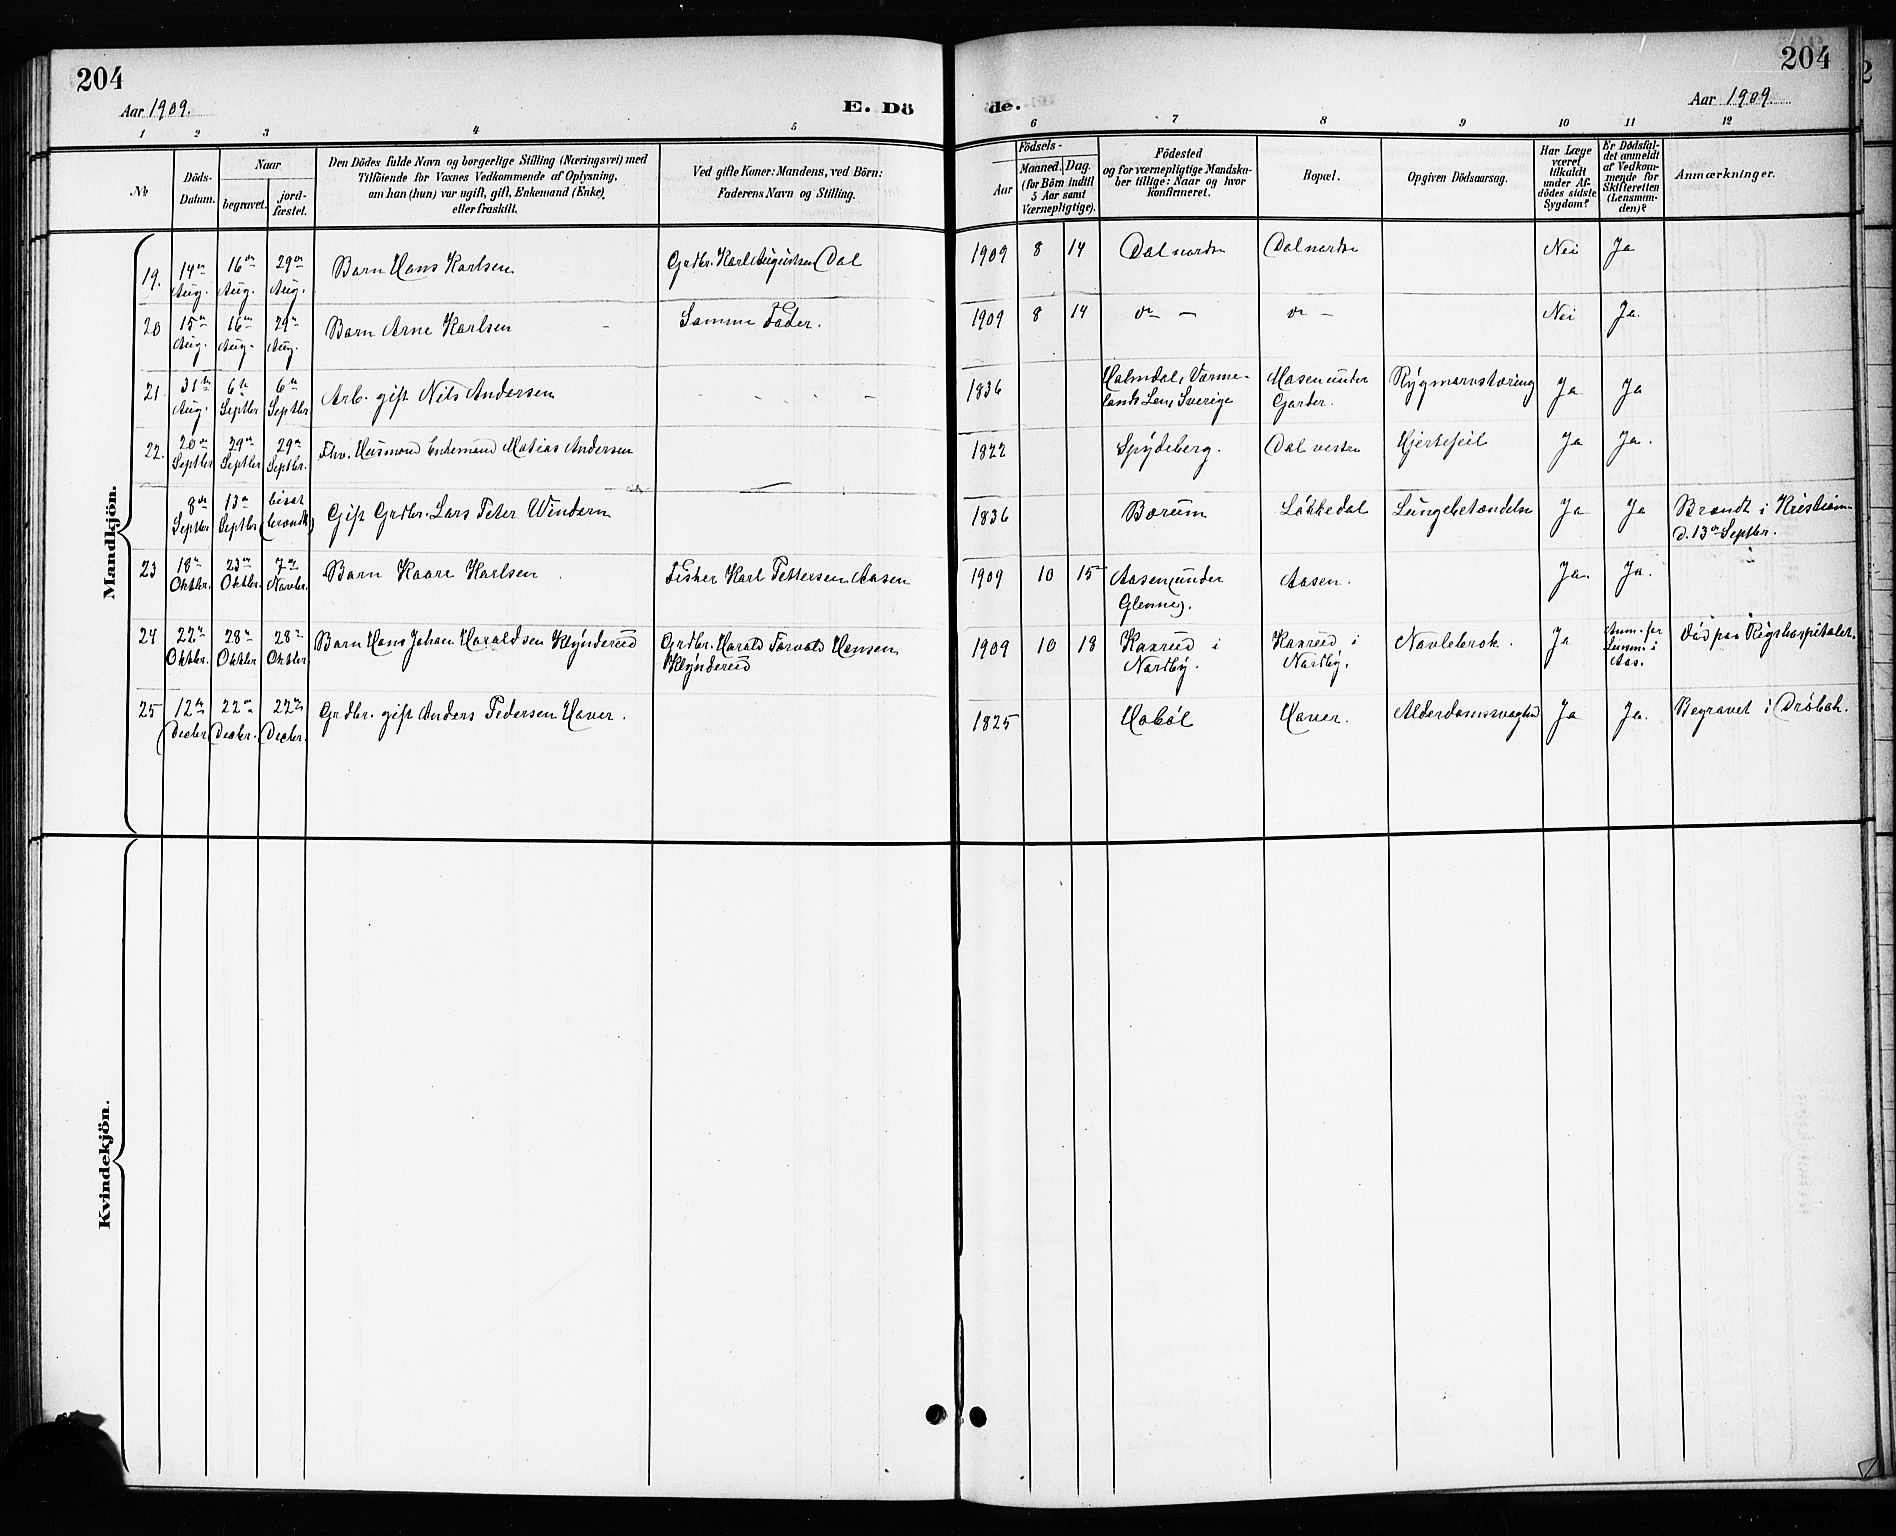 204
204
Aar 1909.
E. Dö
de.
Aar 1909.
1 2 3 4 5 6 7 8 9 10 11 12
No
Döds-
Datum.
Naar
begravet.
jord-
fæstet.
Den Dödes fulde Navn og borgerlige Stilling (Næringsvei) med
Tilföiende for Voxnes Vedkommende af Oplysning,
om han (hun) var ugift, gift, Enkemand (Enke)
eller fraskilt.
Ved gifte Koner: Mandens, ved Börn:
Faderens Navn og Stilling.
Födsels-
Aar
Maaned. Dag.
(for Börn indtil
5 Aar samt
Værnepligtige).
Födested
og for værnepligtige Mandska-
ber tillige: Naar og hvor
konfirmeret.
Bopæl.
Opgiven Dödsaarsag.
Har Læge
været
tilkaldt
under Af-
dödes sidste
Sygdom?
Er Dödsfal-
det anmeldt
af Vedkom-
mende for
Skifteretten
(Lensman-
den)?
Anmærkninger.
Mandkjön.
19. 14de Aug. 16de Aug. 29de Aug. Barn Hans Karlsen Grdbr. Karl Augustsen Dal 1909 8 14 Dal nordre Dal nordre Nei Ja
20 15de Aug. 16de Aug. 29de Aug. Barn Arne Karlsen Samme Fader. 1909 8 14 do — do — Nei Ja.
21 31te Aug. 6te Septbr 6te Septbr Arb. gift Nils Andersen - - - - 1836 Holmdal, Værme-
lands Len, Sverige Mosen under
Garder. Rygmarvstæring Ja Ja
22. 20de Septbr 29de Septbr 29de Septbr. Fhv. Husmand Enkemand Matias Andersen 1822 Spydeberg. Dal vestre Hjertefeil Ja Ja.
8de Septbr 13de Septbr bisat (brændt) Gift Grdbr. Lars Peter Windern — 1836 Bærum Løkkedal Lungebetændelse Ja Ja Brændt i Kristiania
d. 13de Septbr.
23 18de Oktbr. 23de Oktbr. 7de Novbr. Barn Kaare Karlsen Fisker Karl Pettersen Aasen 1909 10 15 Aasen (under
Glenne). Aasen. Ja. Ja.
24 22de Oktbr. 28de Oktbr 28de Oktbr Barn Hans Johan Haraldsen Kløndereud Grdbr. Harald Torvald Hansen
Kløndereud 1909 10 18 Kaxrud i
Nordby. Kaxrud i
Nordby. Navlebrok. Ja Anm. for
Lensm. i
Aas. Død paa Rigshospitalet.
25 12te Decbr 22de Decbr. 22de Decbr. Grdbr. gift Anders Pedersen Haver. 1825 Hobøl Haver. Alderdomssvaghed Ja Ja. Begravet i Drøbak.
Kvindekjön.